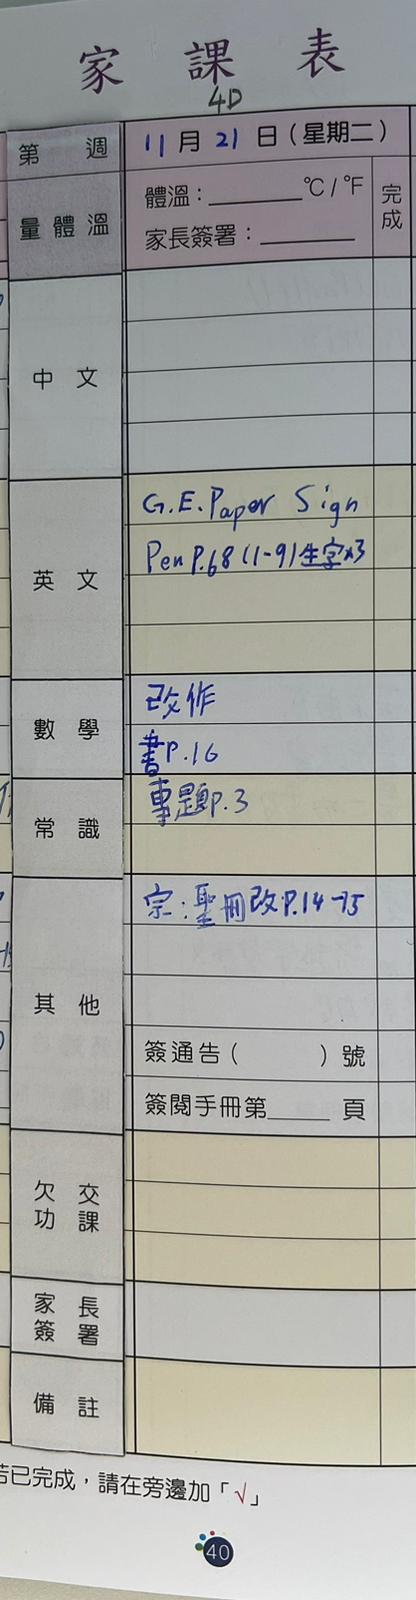 家課表
4D
第 週 11月21日(星期二)
量體溫 體溫：________℃/℉ 完成
家長簽署：________
中文
英文
G.E.Paper Sign
Pen P.68 (1-9)生字x3
數學
改作
書P.16
常識
專題P.3
其他
宗:聖冊改P.14-15
簽通告( )號
簽閱手冊第_____頁
欠交功課
家長簽署
備註
若已完成，請在旁邊加「√」
40